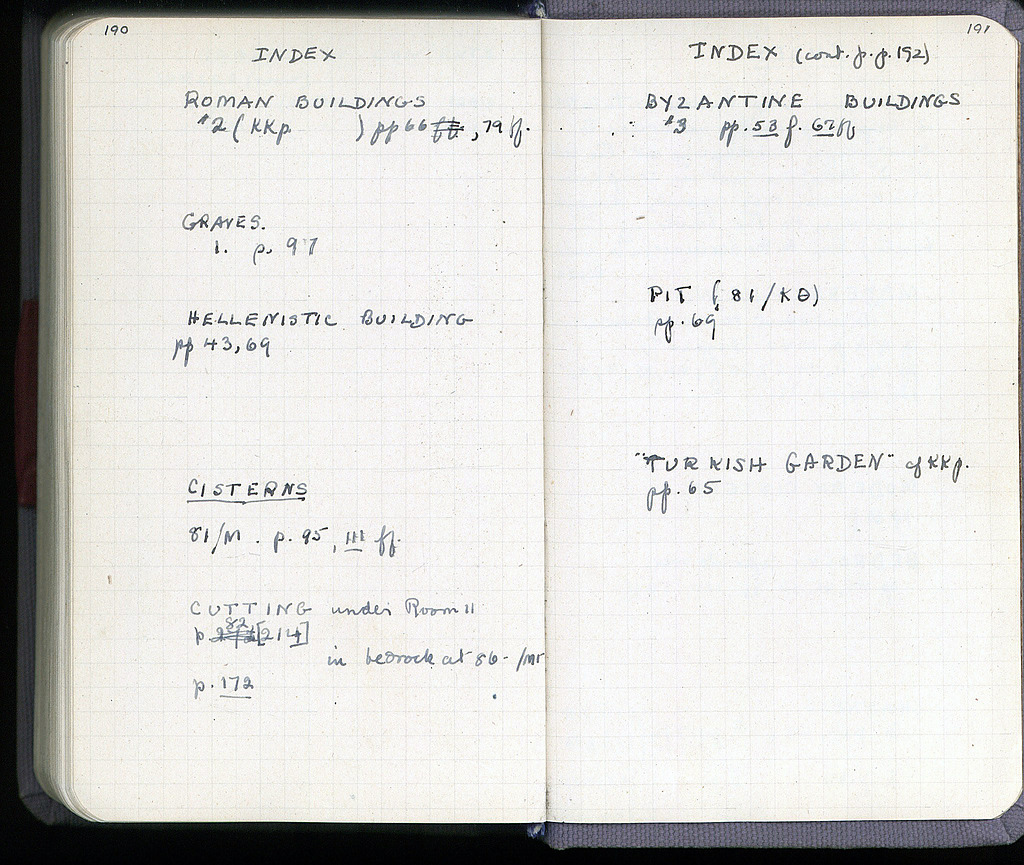 190
INDEX
ROMAN BUILDINGS
#2 (KKp ) pp 66 ff, 79 ff.
GRAVES.
1. p. 97
HELLENISTIC BUILDING
pp 43, 69
CISTERNS
81/M. p. 95, 111 ff.
CUTTING under Room 11
82
p. [214]
in bedrock at 86-/
p. 172
191
INDEX (cont. p. p. 192)
BYZANTINE BUILDINGS
#3 pp. 53 f. 67 ff
PIT (81/KΘ)
pp. 69
"TURKISH GARDEN" of KKp.
pp. 65